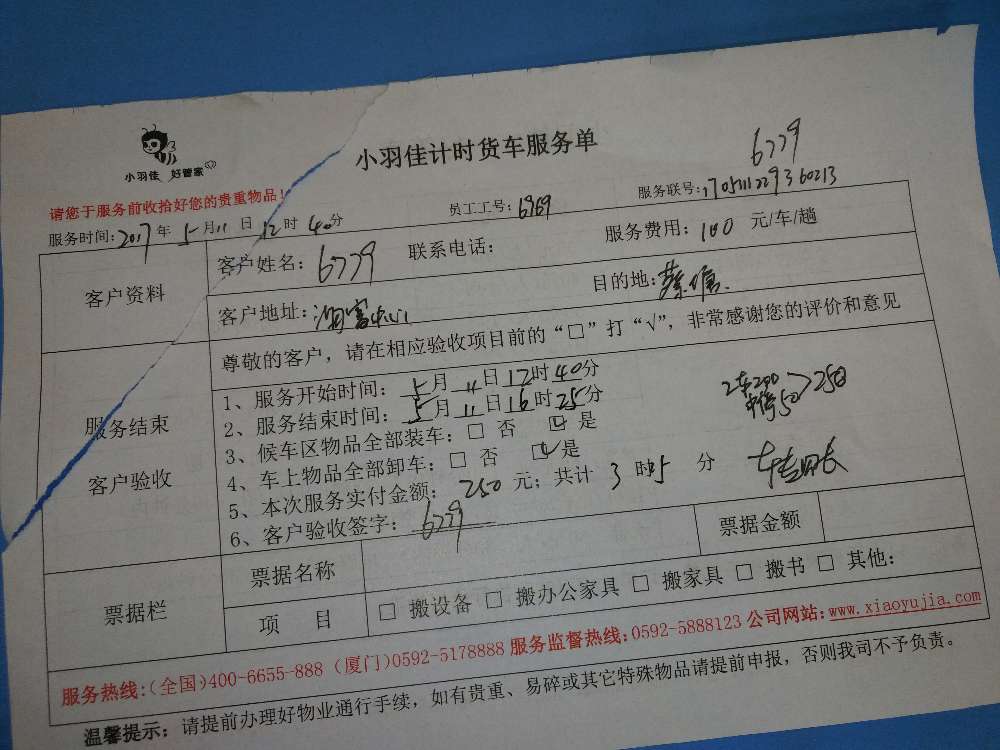 小羽佳 好管家
小羽佳计时货车服务单
6779
请您于服务前收拾好您的贵重物品!
员工工号:6969
服务联号:
服务时间:2017年5月11日12时40分
客户资料
客户姓名:6779 联系电话: 服务费用:100元/车/趟
客户地址: 目的地:
尊敬的客户,请在相应验收项目前的“□”打“√”,非常感谢您的评价和意见
服务结束
客户验收
1、服务开始时间:5月11日12时40分
2、服务结束时间:5月11日16时25分
3、候车区物品全部装车:□ 否 ☑ 是
4、车上物品全部卸车:□ 否 ☑ 是
5、本次服务实付金额:250元;共计3时5分
6、客户验收签字:6779
2车200
50>250
票据栏
票据名称 票据金额
项 目 □ 搬设备 □ 搬办公家具 □ 搬家具 □ 搬书 □ 其他:
服务热线:(全国)400-6655-888 (厦门)0592-5178888 服务监督热线:0592-5888123 公司网站:www.xiaoyujia.com
温馨提示:请提前办理好物业通行手续,如有贵重、易碎或其它特殊物品请提前申报,否则我司不予负责。